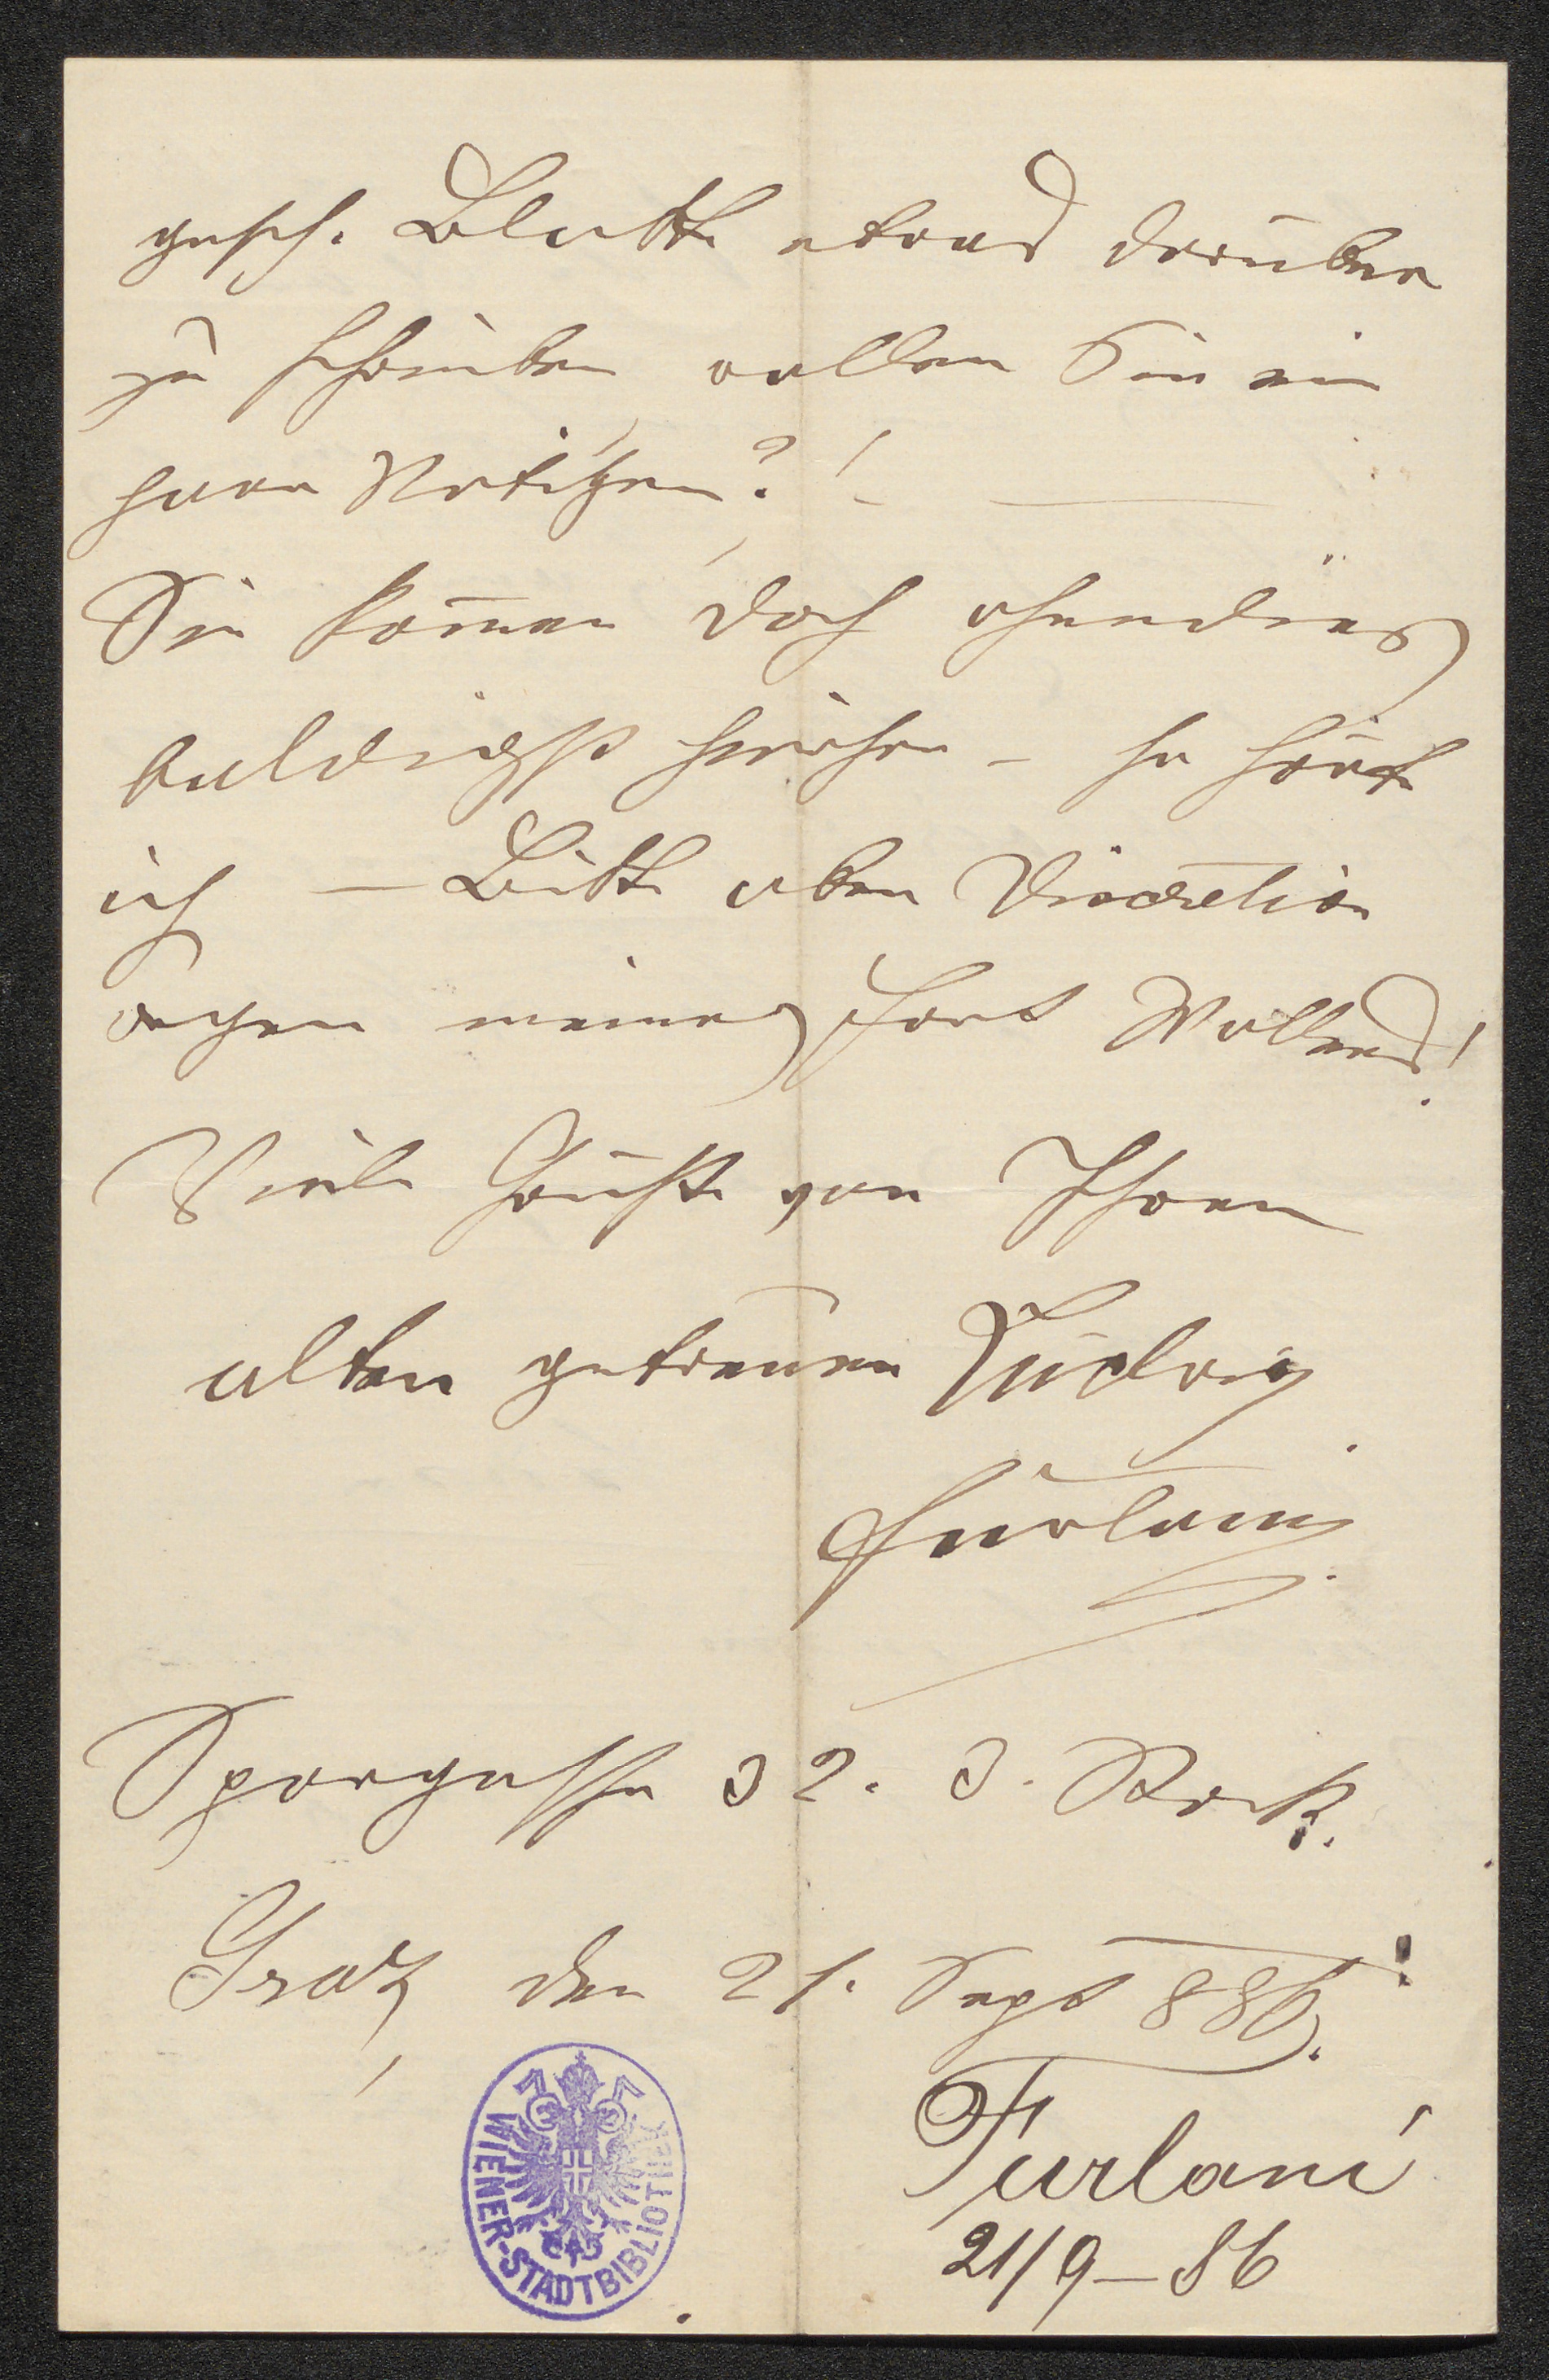 gesch. Blatte etwas darüber
zu schreiben wollen Sie ein
paar Notitzen?! —
Sie kom̄en doch ohnedies
baldigst hierher – so hörte
ich — Bitte aber Discretion
wegen meines Fort Wollens!
Viele Grüße von Ihren
alten getreuen Ludwig
Furlani
Sporgasse 32. 3. Stock.
Graz, den 21. Sept 886.
Furlani
21/9–86
WIENER-STADTBIBLIOTHEK